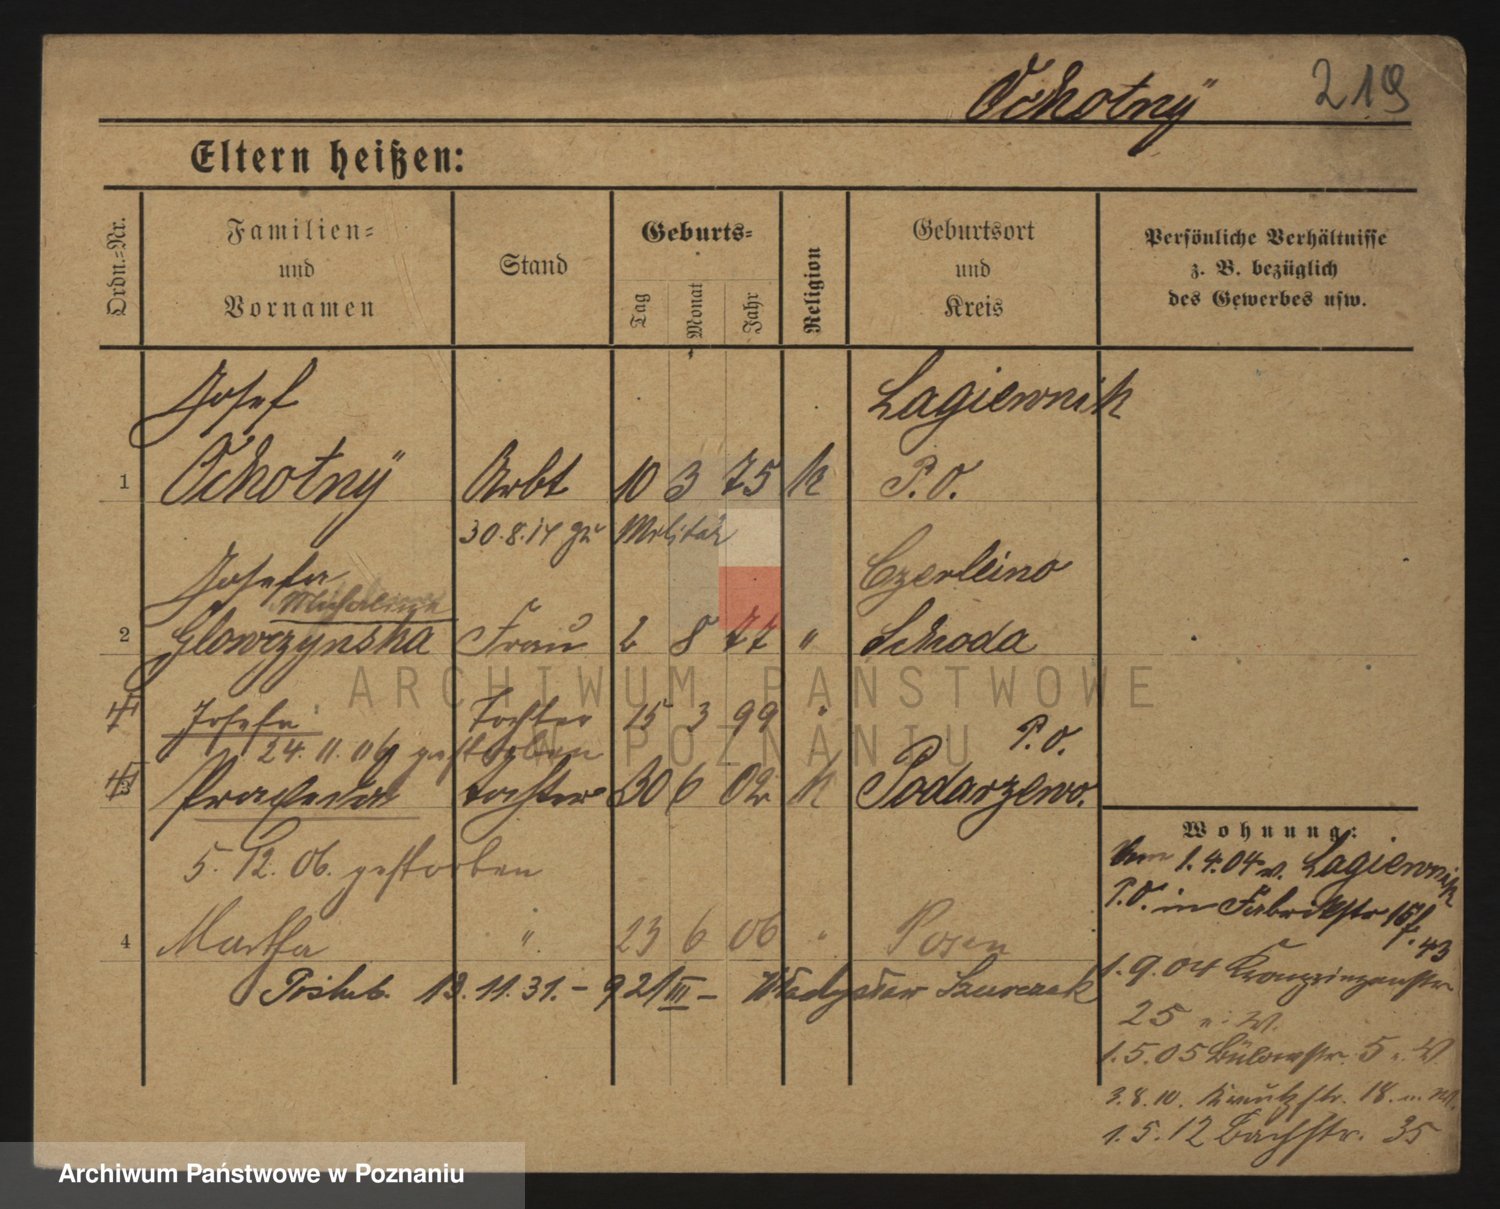 Ochotnÿ 219
Eltern heißen:
Ordn.-Nr.
Familien-
und
Vornamen
Stand
Geburts-
Tag
Monat
Jahr
Religion
Geburtsort
und
Kreis
Persönliche Verhältnisse
z. B. bezüglich
des Gewerbes usw.
Josef Lagiewnik
1 Ochotnÿ Arbt 10 3 75 k P.O.
30.8.14 zu Militär
Josefa Czerleino
2 Glowczynska Frau 2 8 77 " Schroda
Josefa Tochter 15 3 99 " P.O.
24.11.06 gestorben
3 Praxeda Tochter 30 6 02 k Podarzewo.
5.12.06. gestorben
4 Martha " 23 6 06 " Posen
Poślub. 13.11.31. - 921 III - Władysław Szurczak
Wohnung:
1.4.04 v. Lagiewnik
P.O. in Fabrikstr
43
1.9.04 Kronprinzenstr
25
1.5.05 Bülowstr. 5
3.8.10. Kreutzstr. 18.
1.5.12 Bachstr. 35
ARCHIWUM PAŃSTWOWE
W POZNANIU
Archiwum Państwowe w Poznaniu